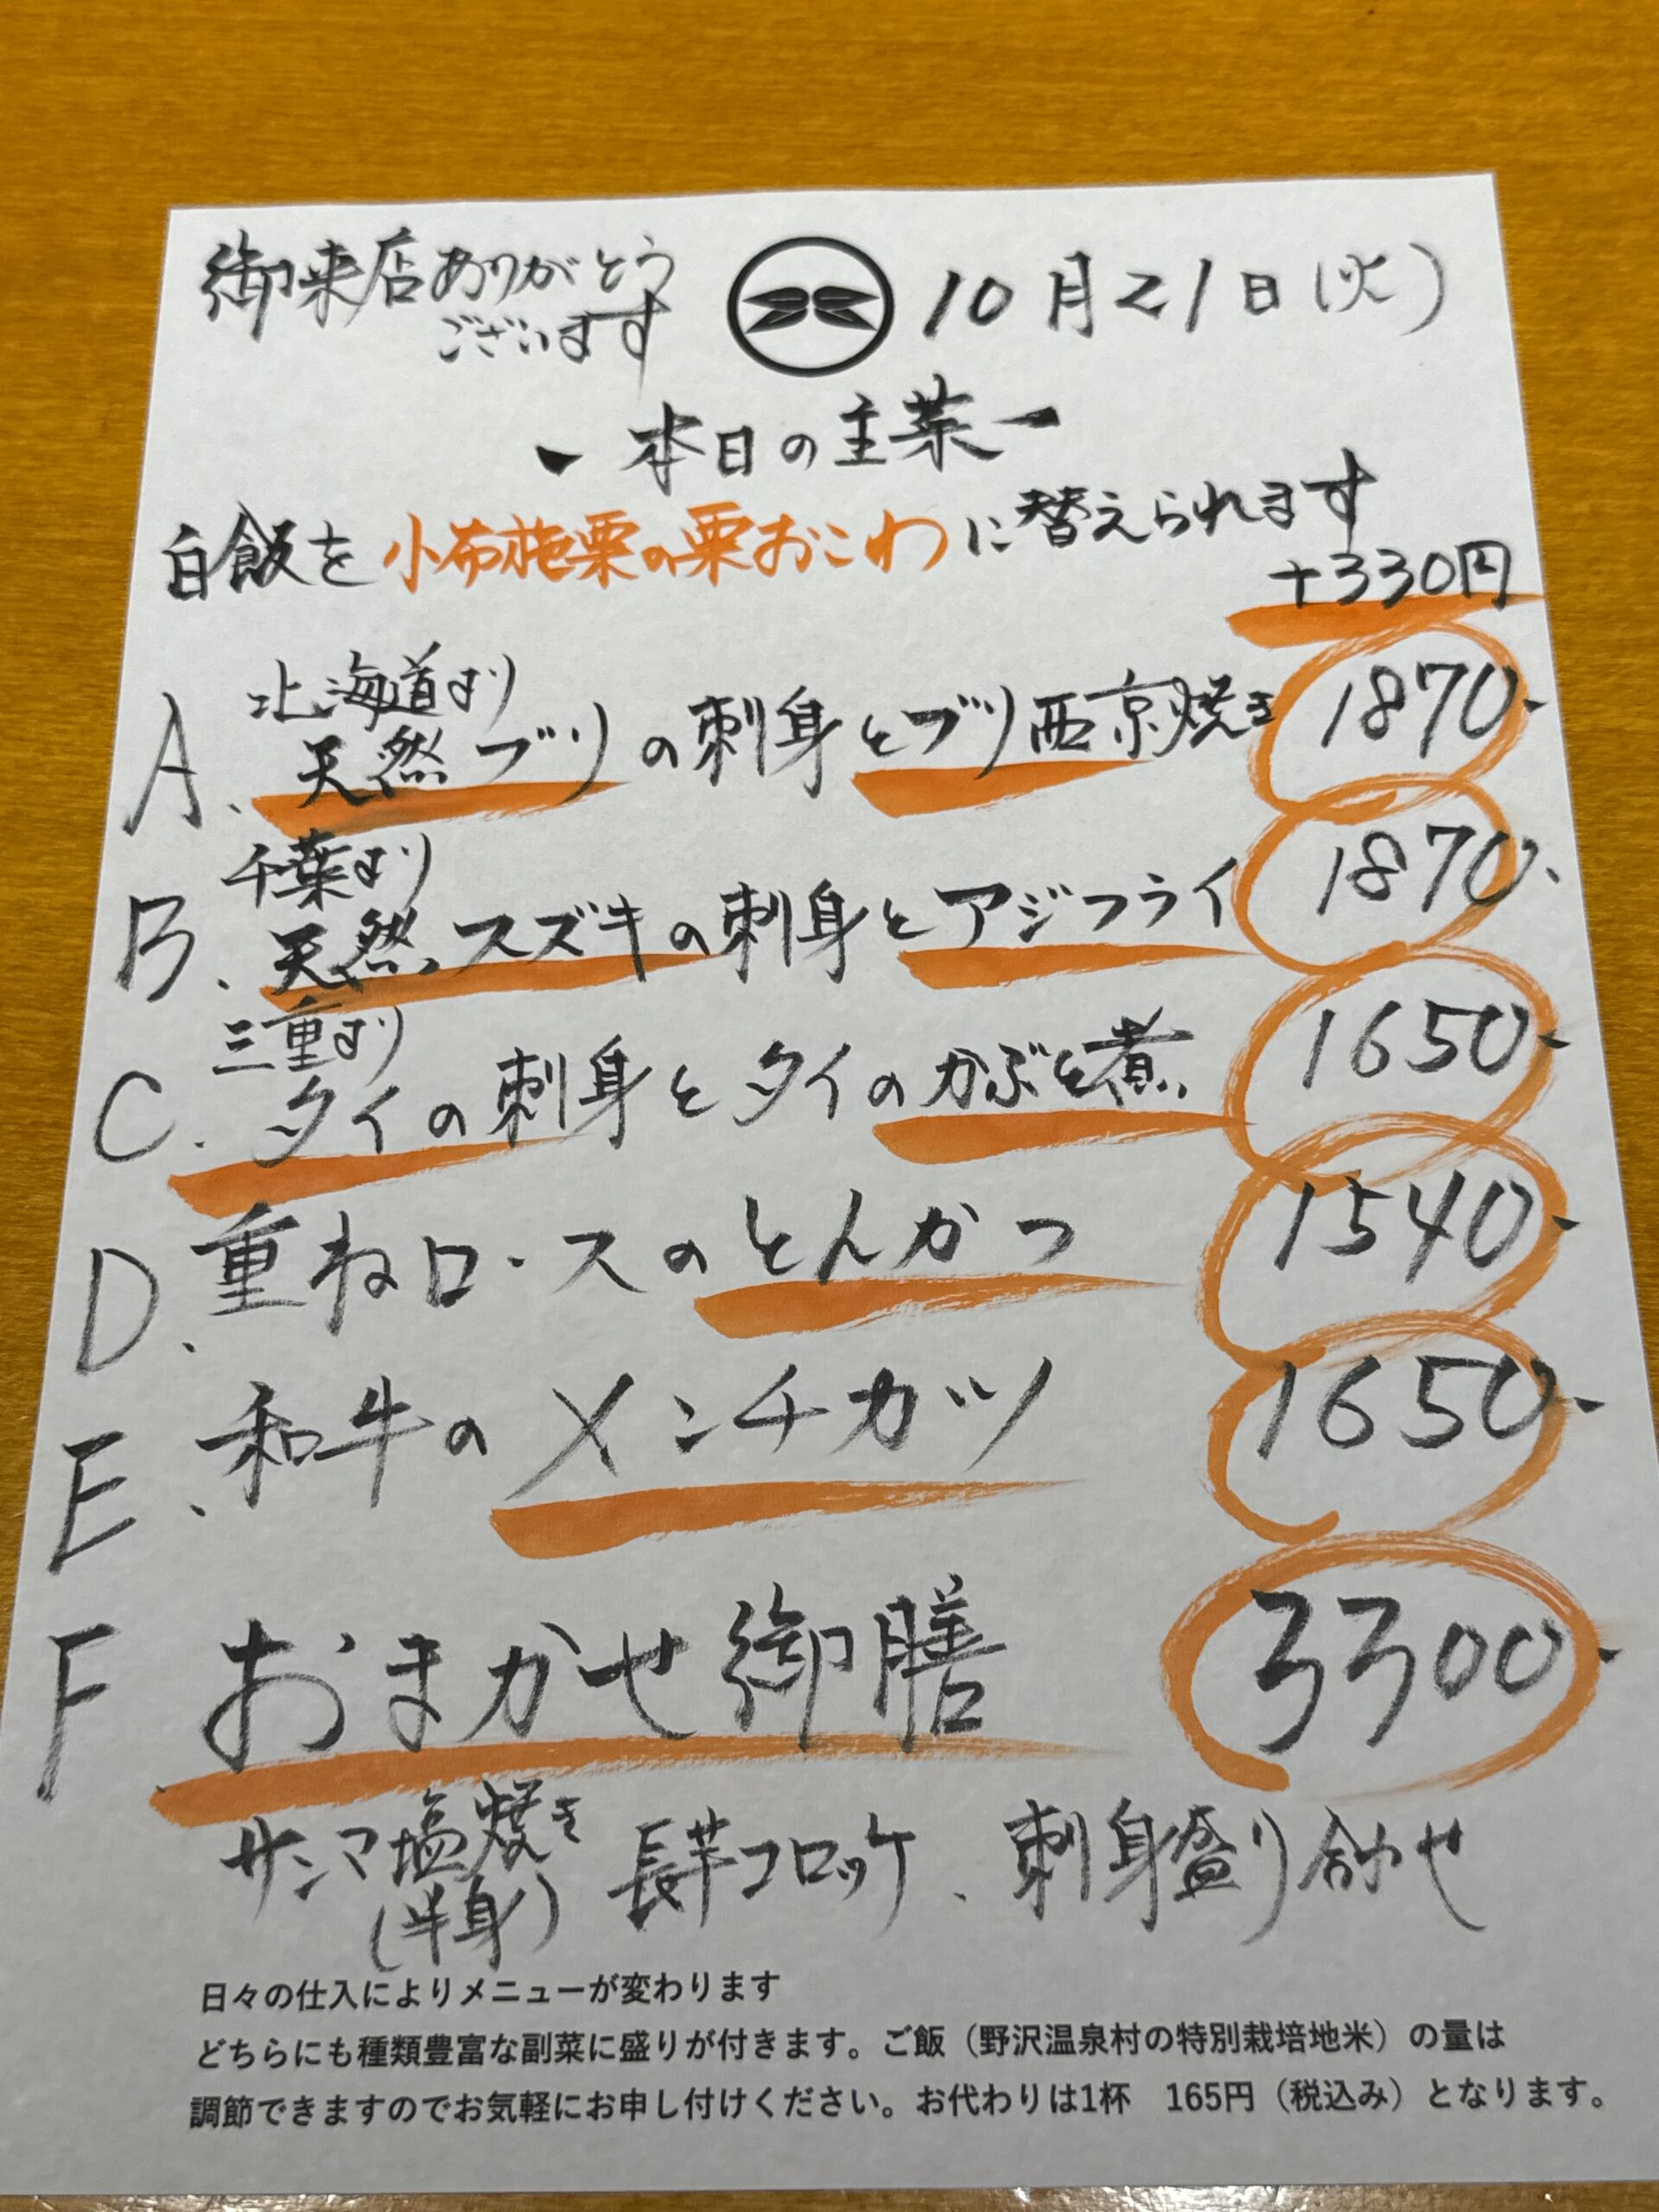 御来店ありがとう
ございます
10月21日(火)
ー本日の主菜ー
白飯を小布施栗の栗おこわに替えられます
+330円
北海道より
A、天然ブリの刺身とブリ西京焼き 1870-
千葉より
B、天然スズキの刺身とアジフライ 1870-
三重より
C、タイの刺身とタイのかぶと煮 1650-
D、重ねロースのとんかつ 1540-
E、和牛のメンチカツ 1650-
F おまかせ御膳 3300-
サンマ塩焼き 長芋コロッケ、刺身盛り合わせ
(半身)
日々の仕入によりメニューが変わります
どちらにも種類豊富な副菜に盛りが付きます。ご飯（野沢温泉村の特別栽培地米）の量は
調節できますのでお気軽にお申し付けください。お代わりは1杯　165円（税込み）となります。